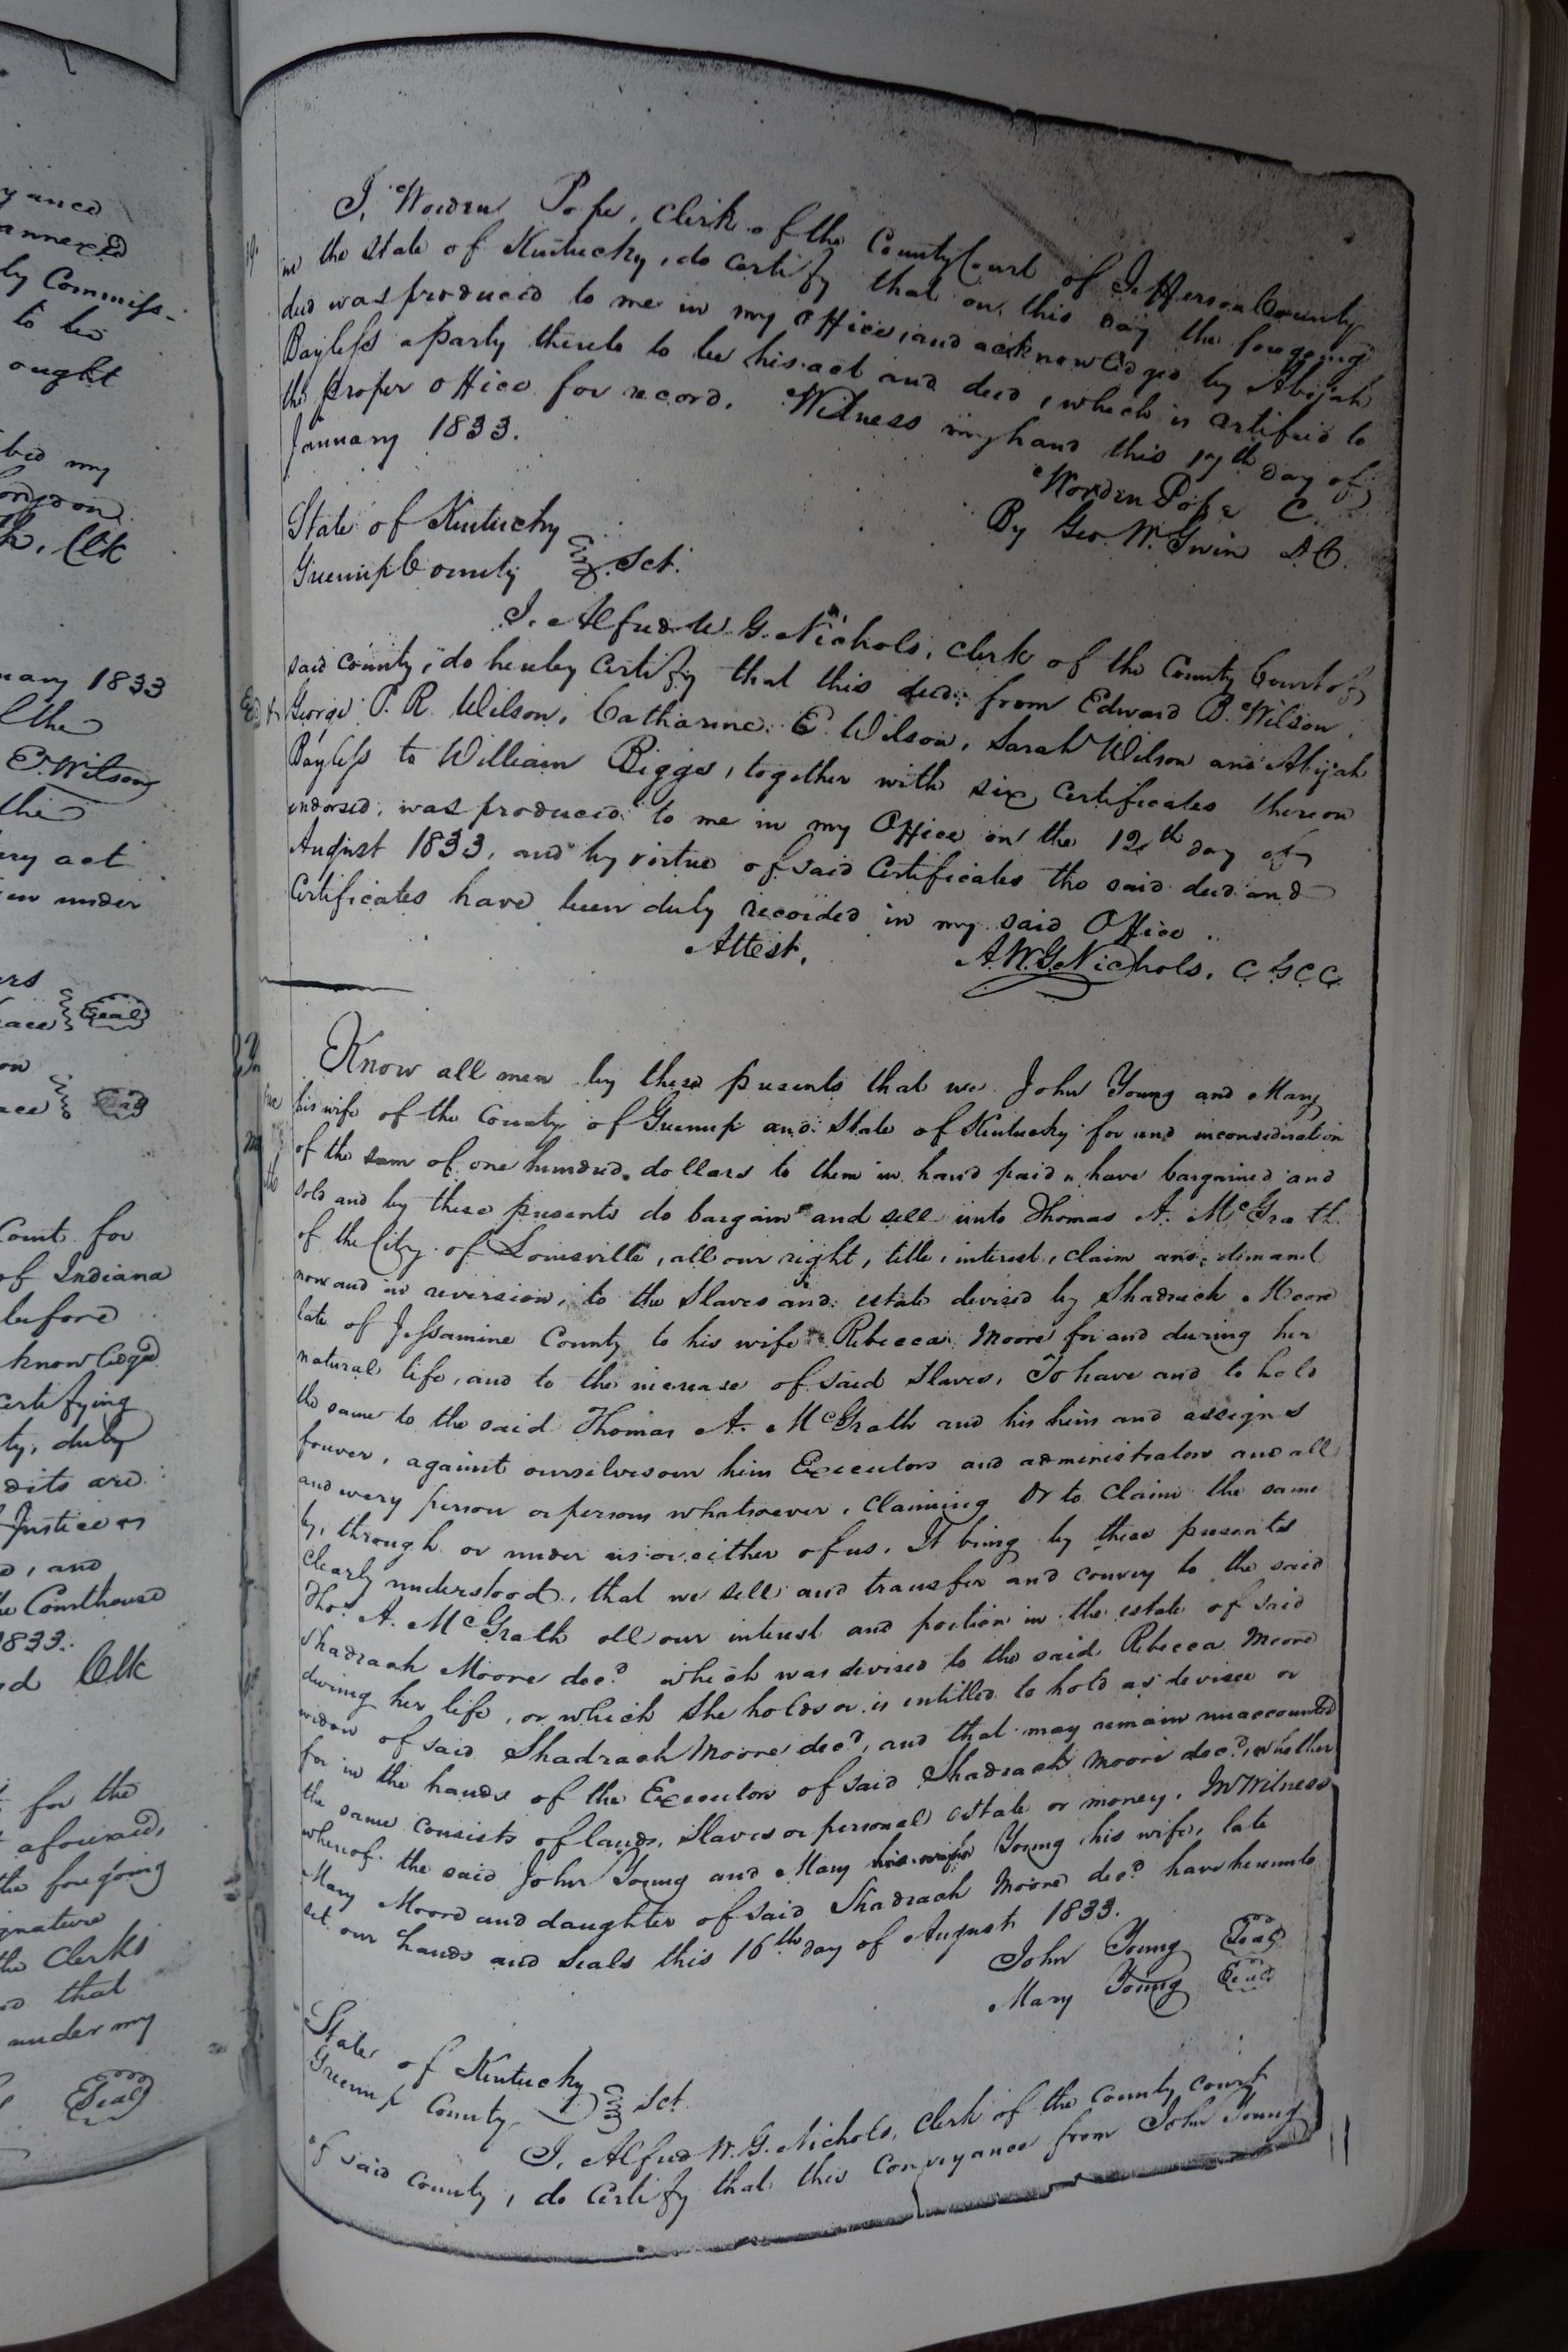 y ance
annexed
ly Commiss-
to be
ought
bed my
ongdon
h. Clk
uary 1833
l the
E. Wilson
the
ary act
en under
ers
eace Seal
on
ace Seal
Court for
of Indiana
before
knowledged
certifying
ty, duly
dits are
Justice or
d, and
he Courthouse
1833.
d Clk
t for the
t aforesaid,
the foregoing
ignature
the Clerks
d that
under my
Seal
I, Worden Pope, Clerk of the County Court of Jefferson County
in the State of Kentucky, do certify that on this day the foregoing
deed was produced to me in my Office, and acknowledged by Abijah
Bayless a party thereto to be his act and deed, which is certified to
the proper office for record. Witness my hand this 17th day of
January 1833.
Worden Pope C.
By Geo. W. Gwin D.C.
State of Kentucky
Greenup County Sct.
I, Alfred W. G. Nichols, Clerk of the County Court of
said county, do hereby certify that this deed from Edward B. Wilson,
George P. R. Wilson, Catharine E. Wilson, Sarah Wilson and Abijah
Bayless to William Biggs, together with six Certificates thereon
endorsed, was produced to me in my Office on the 12th day of
August 1833, and by virtue of said Certificates the said deed and
Certificates have been duly recorded in my said Office.
Attest, A. W. G. Nichols, C G C C
Know all men by these presents that we John Young and Mary
his wife of the County of Greenup and State of Kentucky for and in consideration
of the sum of one hundred dollars to them in hand paid, have bargained and
sold and by these presents do bargain and sell unto Thomas A. McGrath
of the City of Louisville, all our right, title, interest, claim and demand
now and in reversion, to the Slaves and estate devised by Shadrach Moore
late of Jessamine County to his wife Rebecca Moore for and during her
natural life, and to the increase of said Slaves, To have and to hold
the same to the said Thomas A. McGrath and his heirs and assigns
forever, against ourselves our heirs Executors and administrators and all
and every person or persons whatsoever, claiming or to claim the same
by, through or under us or either of us. It being by these presents
clearly understood, that we sell and transfer and convey to the said
Thos. A. McGrath all our interest and portion in the estate of said
Shadrach Moore decd. which was devised to the said Rebecca Moore
during her life, or which she holds or is entitled to hold as devisee or
widow of said Shadrach Moore decd, and that may remain unaccounted
for in the hands of the Executors of said Shadrach Moore decd, whether
the same consists of lands, Slaves or personal estate or money. In Witness
whereof the said John Young and Mary his wife Young his wife, late
Mary Moore and daughter of said Shadrach Moore decd have hereunto
set our hands and seals this 16th day of August 1833.
John Young Seal
Mary Young Seal
State of Kentucky
Greenup County Sct.
I, Alfred W. G. Nichols, Clerk of the county court
of said county, do certify that this conveyance from John Young